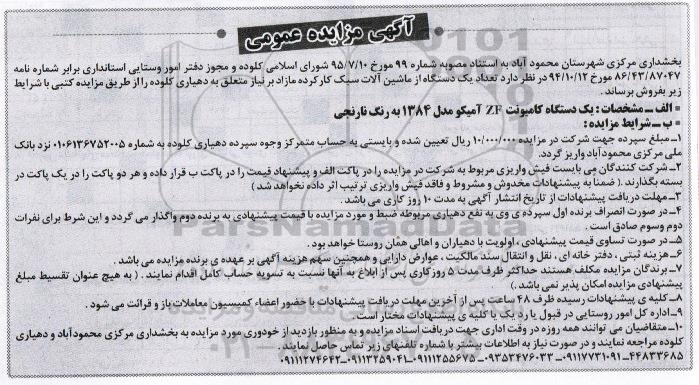 آگهی مزایده عمومی
بخشداری مرکزی شهرستان محمود آباد به استناد مصوبه شماره ۹۹ مورخ ۹۵/۷/۱۰ شورای اسلامی کلوده و مجوز دفتر امور وستایی استانداری برابر شماره نامه
۸۶/۴۳/۸۷۰۴۷ مورخ ۹۴/۱۰/۱۲ در نظر دارد تعداد یک دستگاه از ماشین آلات سبک کارکرده مازاد بر نیاز متعلق به دهیاری کلوده را از طریق مزایده کتبی با شرایط
زیر بفروش برساند.
الف ـ مشخصات : یک دستگاه کامیونت ZF آمیکو مدل ۱۳۸۴ به رنگ نارنجی
ب ـ شرایط مزایده :
۱ـ مبلغ سپرده جهت شرکت در مزایده ۱۰/۰۰۰/۰۰۰ ریال تعیین شده و بایستی به حساب متمرکز وجوه سپرده دهیاری کلوده به شماره ۰۱۰۶۱۳۶۷۵۲۰۰۵ نزد بانک
ملی مرکزی محمودآباد واریز گردد.
۲ـ شرکت کنندگان می بایست فیش واریزی مربوط به شرکت در مزایده را در پاکت الف و پیشنهاد قیمت را در پاکت ب قرار داده و هر دو پاکت را در یک پاکت در
بسته بگذارند. ( ضمنا به پیشنهادات مخدوش و مشروط و فاقد فیش واریزی ترتیب اثر داده نخواهد شد )
۳ـ مهلت دریافت پیشنهادات از تاریخ انتشار آگهی به مدت ۱۰ روز کاری می باشد.
۴ـ در صورت انصراف برنده اول سپرده ی وی به نفع دهیاری مربوطه ضبط و مورد مزایده با قیمت پیشنهادی به برنده دوم واگذار می گردد و این شرط برای نفرات
دوم وسوم صادق است .
۵ـ در صورت تساوی قیمت پیشنهادی ، اولویت با دهیاران و اهالی همان روستا خواهد بود.
۶ـ هزینه ثبتی ، دفتر خانه ای ، نقل و انتقال سند مالکیت ، عوارض دارایی و همچنین سهم هزینه آگهی بر عهده ی برنده مزایده می باشد .
۷ـ برندگان مزایده مکلف هستند حداکثر ظرف مدت ۵ روزکاری پس از ابلاغ به آنها نسبت به تسویه حساب کامل اقدام نمایند . ( به هیچ عنوان تقسیط مبلغ
پیشنهادی مزایده امکان پذیر نمی باشد.)
۸ـ کلیه ی پیشنهادات رسیده ظرف ۴۸ ساعت پس از آخرین مهلت دریافت پیشنهادات با حضور اعضاء کمیسیون معاملات باز و قرائت می شود .
۹ـ اداره کل امور روستایی در قبول یا رد یک یا کلیه ی پیشنهادات مختار است .
۱۰ـ متقاضیان می توانند همه روزه در وقت اداری جهت دریافت اسناد مزایده و به منظور بازدید از خودروی مورد مزایده به بخشداری مرکزی محمودآباد و دهیاری
کلوده مراجعه نمایند و در صورت نیاز به اطلاعات بیشتر با شماره تلفنهای زیر تماس حاصل نمایند .
۰۹۱۱۱۲۷۴۶۴۳ـ۰۹۱۱۱۳۲۵۹۰۴۱ـ۰۹۱۱۱۲۵۵۶۷۵ ـ۰۹۳۵۳۴۷۶۰۳۳ ـ۰۹۱۱۷۷۳۱۰۹۱ـ۴۴۸۳۳۶۸۵
ParsNamadData